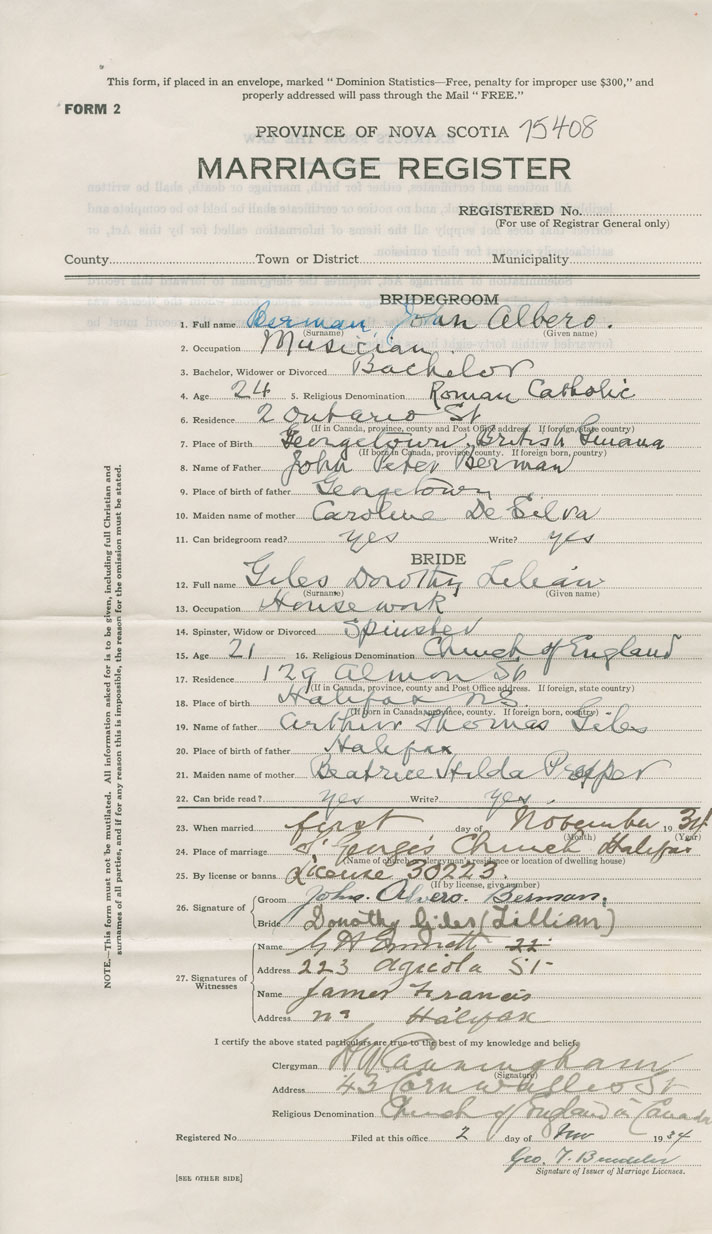 This form, if placed in an envelope, marked " Dominion Statistics—Free, penalty for improper use $300," and
properly addressed will pass through the Mail " FREE."
FORM 2
PROVINCE OF NOVA SCOTIA 75408
MARRIAGE REGISTER
REGISTERED No.
(For use of Registrar General only)
County Town or District Municipality
BRIDEGROOM
1. Full name Berman, John Albero.
(Surname) (Given name)
2. Occupation Musician.
3. Bachelor, Widower or Divorced Bachelor
4. Age 24 5. Religious Denomination Roman Catholic
6. Residence 2 Ontario St
(If in Canada, province, county and Post Office address. If foreign, state country)
7. Place of Birth Georgetown, British Guiana
(If born in Canada, province, county. If foreign born, country)
8. Name of Father John Peter Berman
9. Place of birth of father Georgetown
10. Maiden name of mother Caroline De Silva
11. Can bridegroom read? yes Write? yes
BRIDE
12. Full name Giles Dorothy Lilian
(Surname) (Given name)
13. Occupation Housework
14. Spinster, Widow or Divorced Spinster
15. Age 21 16. Religious Denomination Church of England
17. Residence 129 Almon St
(If in Canada, province, county and Post Office address. If foreign, state country)
18. Place of birth Halifax N.S.
(If born in Canada, province, county. If foreign born, country)
19. Name of father Arthur Thomas Giles
20. Place of birth of father Halifax
21. Maiden name of mother Beatrice Hilda
22. Can bride read? yes Write? yes.
23. When married first day of November 1934
(Month) (Year)
24. Place of marriage St George's Church Halifax
(Name of church or clergyman's residence or location of dwelling house)
25. By license or banns License 30223.
(If by license, give number)
26. Signature of Groom John. Alvero. Berman.
Bride Dorothy Giles (Lillian)
27. Signatures of Witnesses
Name G H
Address 223 Agricola St
Name James Francis
Address Halifax
I certify the above stated particulars are true to the best of my knowledge and belief.
Clergyman H W Cunningham
(Signature)
Address 43 Cornwallis St
Religious Denomination Church of England in Canada
Registered No Filed at this office 2 day of Nov 1934
Geo. T.
Signature of Issuer of Marriage Licenses.
[SEE OTHER SIDE]
NOTE.—This form must not be mutilated. All information asked for is to be given, including full Christian and
surnames of all parties, and if for any reason this is impossible, the reason for the omission must be stated.